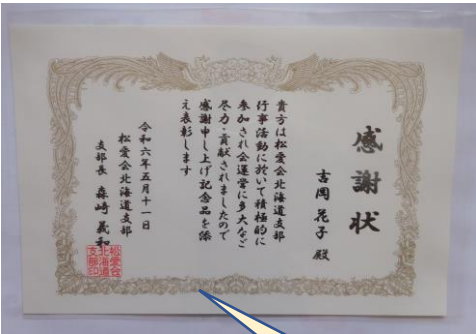 感謝状
吉岡花子殿
貴方は松愛会北海道支部
行事活動に於いて積極的に
参加され会運営に多大なご
尽力・貢献されましたので
感謝申し上げ記念品を添
え表彰します
令和六年五月十一日
松愛会北海道支部
支部長 森崎義和
松愛会
北海道
支部印